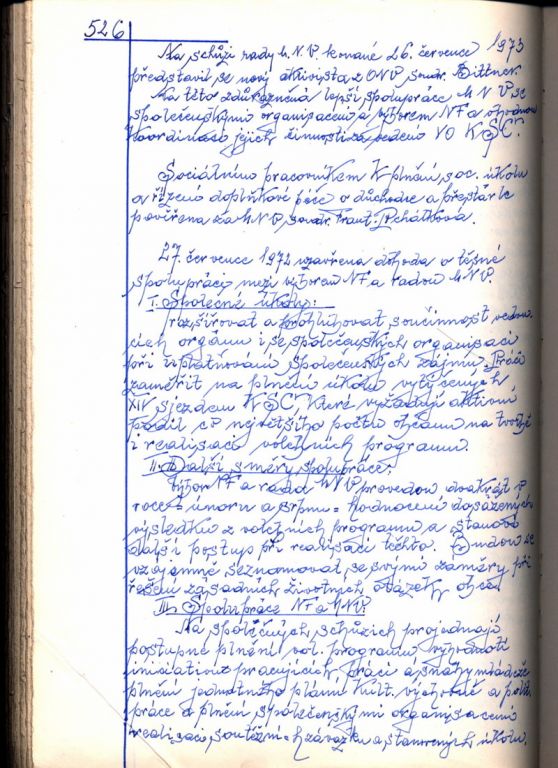 526
Na schůzi rady M.N.V. konané 26. července 1973
představil se nový aktivista z ONV, soudr. Bittner.
Na této zdůrazněná lepší spolupráce MNV se
společenskými organisacemi a výborem NF a
koordinaci jejich činnosti za vedení VO KSČ.
Sociálním pracovníkem k plnění soc. úkolu
a řízení doplňkové péče o důchodce a přestárlé
pověřena za MNV, soudr. Frant.
27. července 1972 uzavřena dohoda o těsné
spolupráci mezi výborem NF a radou M.N.V.
I. Společné úkoly:
rozšiřovat a prohlubovat součinnost
cích orgánu i se společenských organisací
při uplatňování společenských zájmů. Práci
zaměřit na plnění úkolu vytyčených
XIV. sjezdem KSČ, které vyžadují aktivní
podíl co největšího počtu občanu na tvorbě
i realisaci volebních programu.
II. Další směry spolupráce.
Výbor NF a rada MNV provedou dvakrát v
roce v únoru a srpnu - hodnocení dosažených
výsledku z volebních programu a stanoví
další postup při realisaci těchto. Budou se
vzájemně seznamovat, se svými záměry při
řešení zásadních životných otázek obce.
III. Spolupráce NF a MNV.
Na společných schůzích projednají
postupné plnění vol. programu, vyhodnotí
iniciativu pracujících, práci a snahy mládeže
plnění jednotného plánu kult. výchovné a polit.
práce a plnění společenskými organisacemi
realisaci soutěžních závazku a stanovených úkolu.